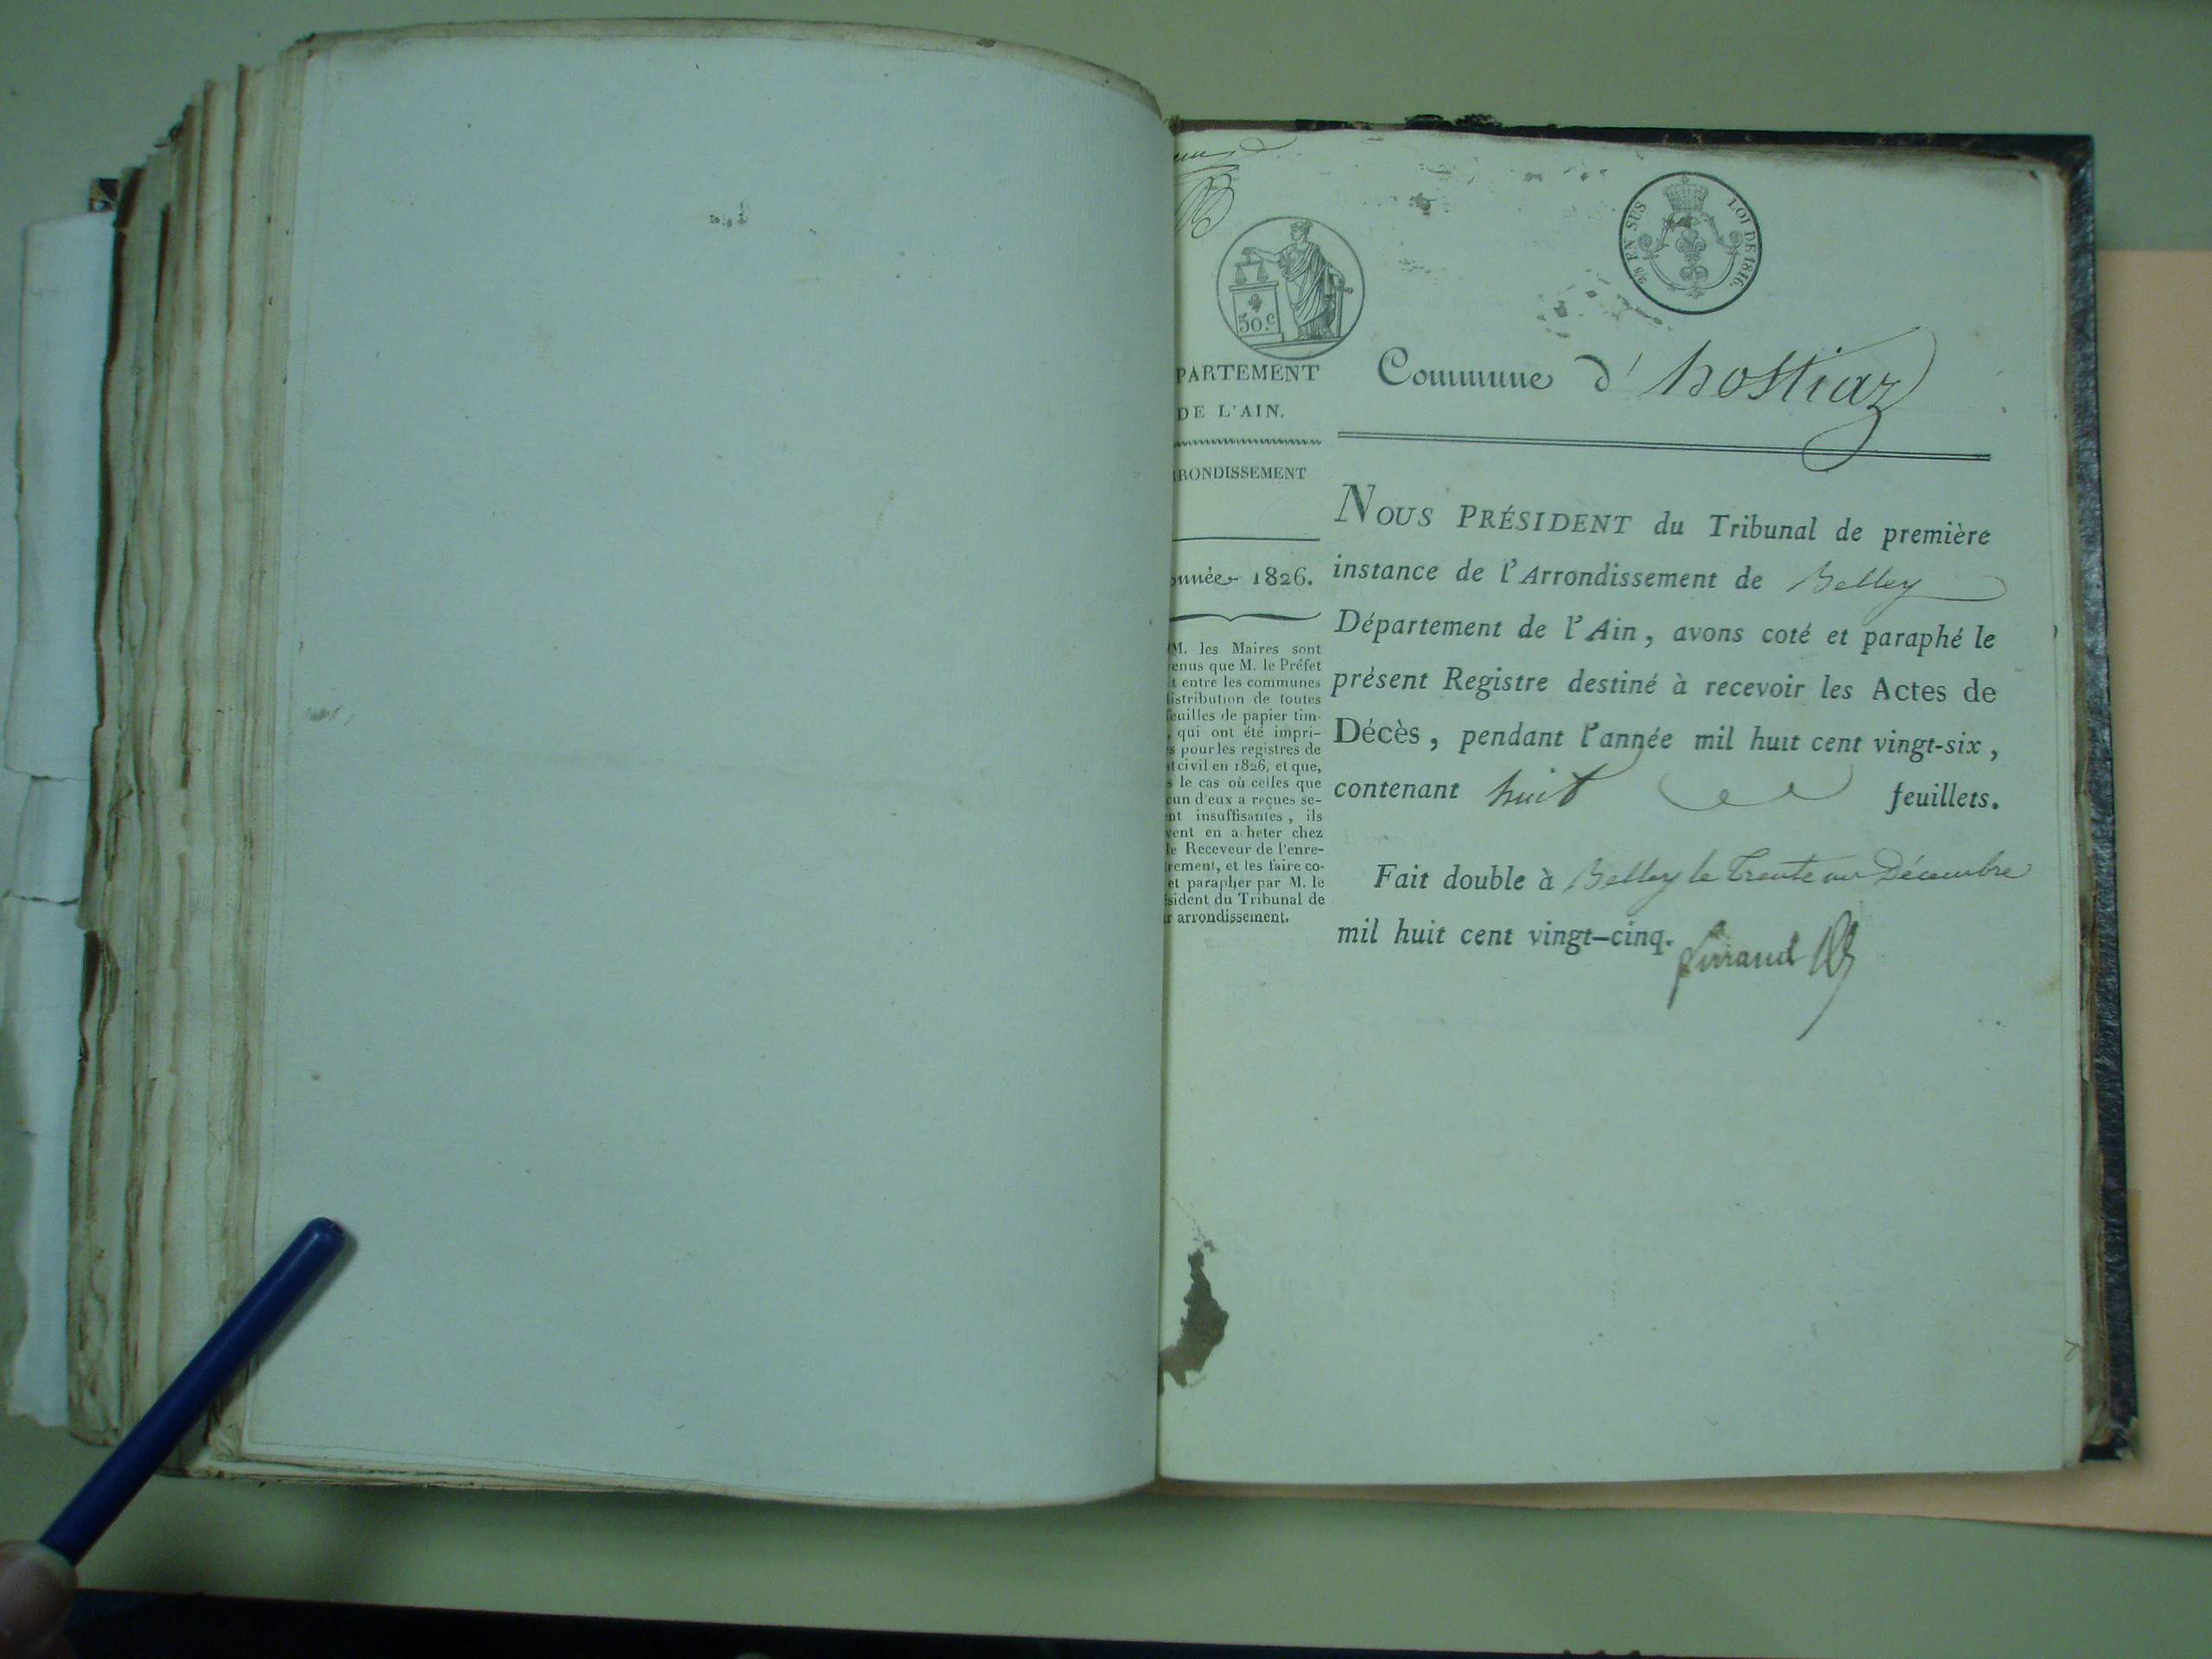 50.c
28 EN SUS LOI DE 1816.
PARTEMENT
DE L'AIN.
RONDISSEMENT
année 1826.
M. les Maires sont
enus que M. le Préfet
t entre les communes
istribution de toutes
euilles de papier tim-
, qui ont été impri-
s pour les registres de
t civil en 1826, et que,
s le cas où celles que
cun d'eux a reçues se-
nt insuffisantes, ils
vent en acheter chez
le Receveur de l'enre-
rement, et les faire co-
et parapher par M. le
sident du Tribunal de
r arrondissement.
Commune d'hostiaz
NOUS PRÉSIDENT du Tribunal de première
instance de l'Arrondissement de Belley
Département de l'Ain, avons coté et paraphé le
présent Registre destiné à recevoir les Actes de
Décès, pendant l'année mil huit cent vingt-six,
contenant huit feuillets.
Fait double à Belley le Trente un Décembre
mil huit cent vingt-cinq.